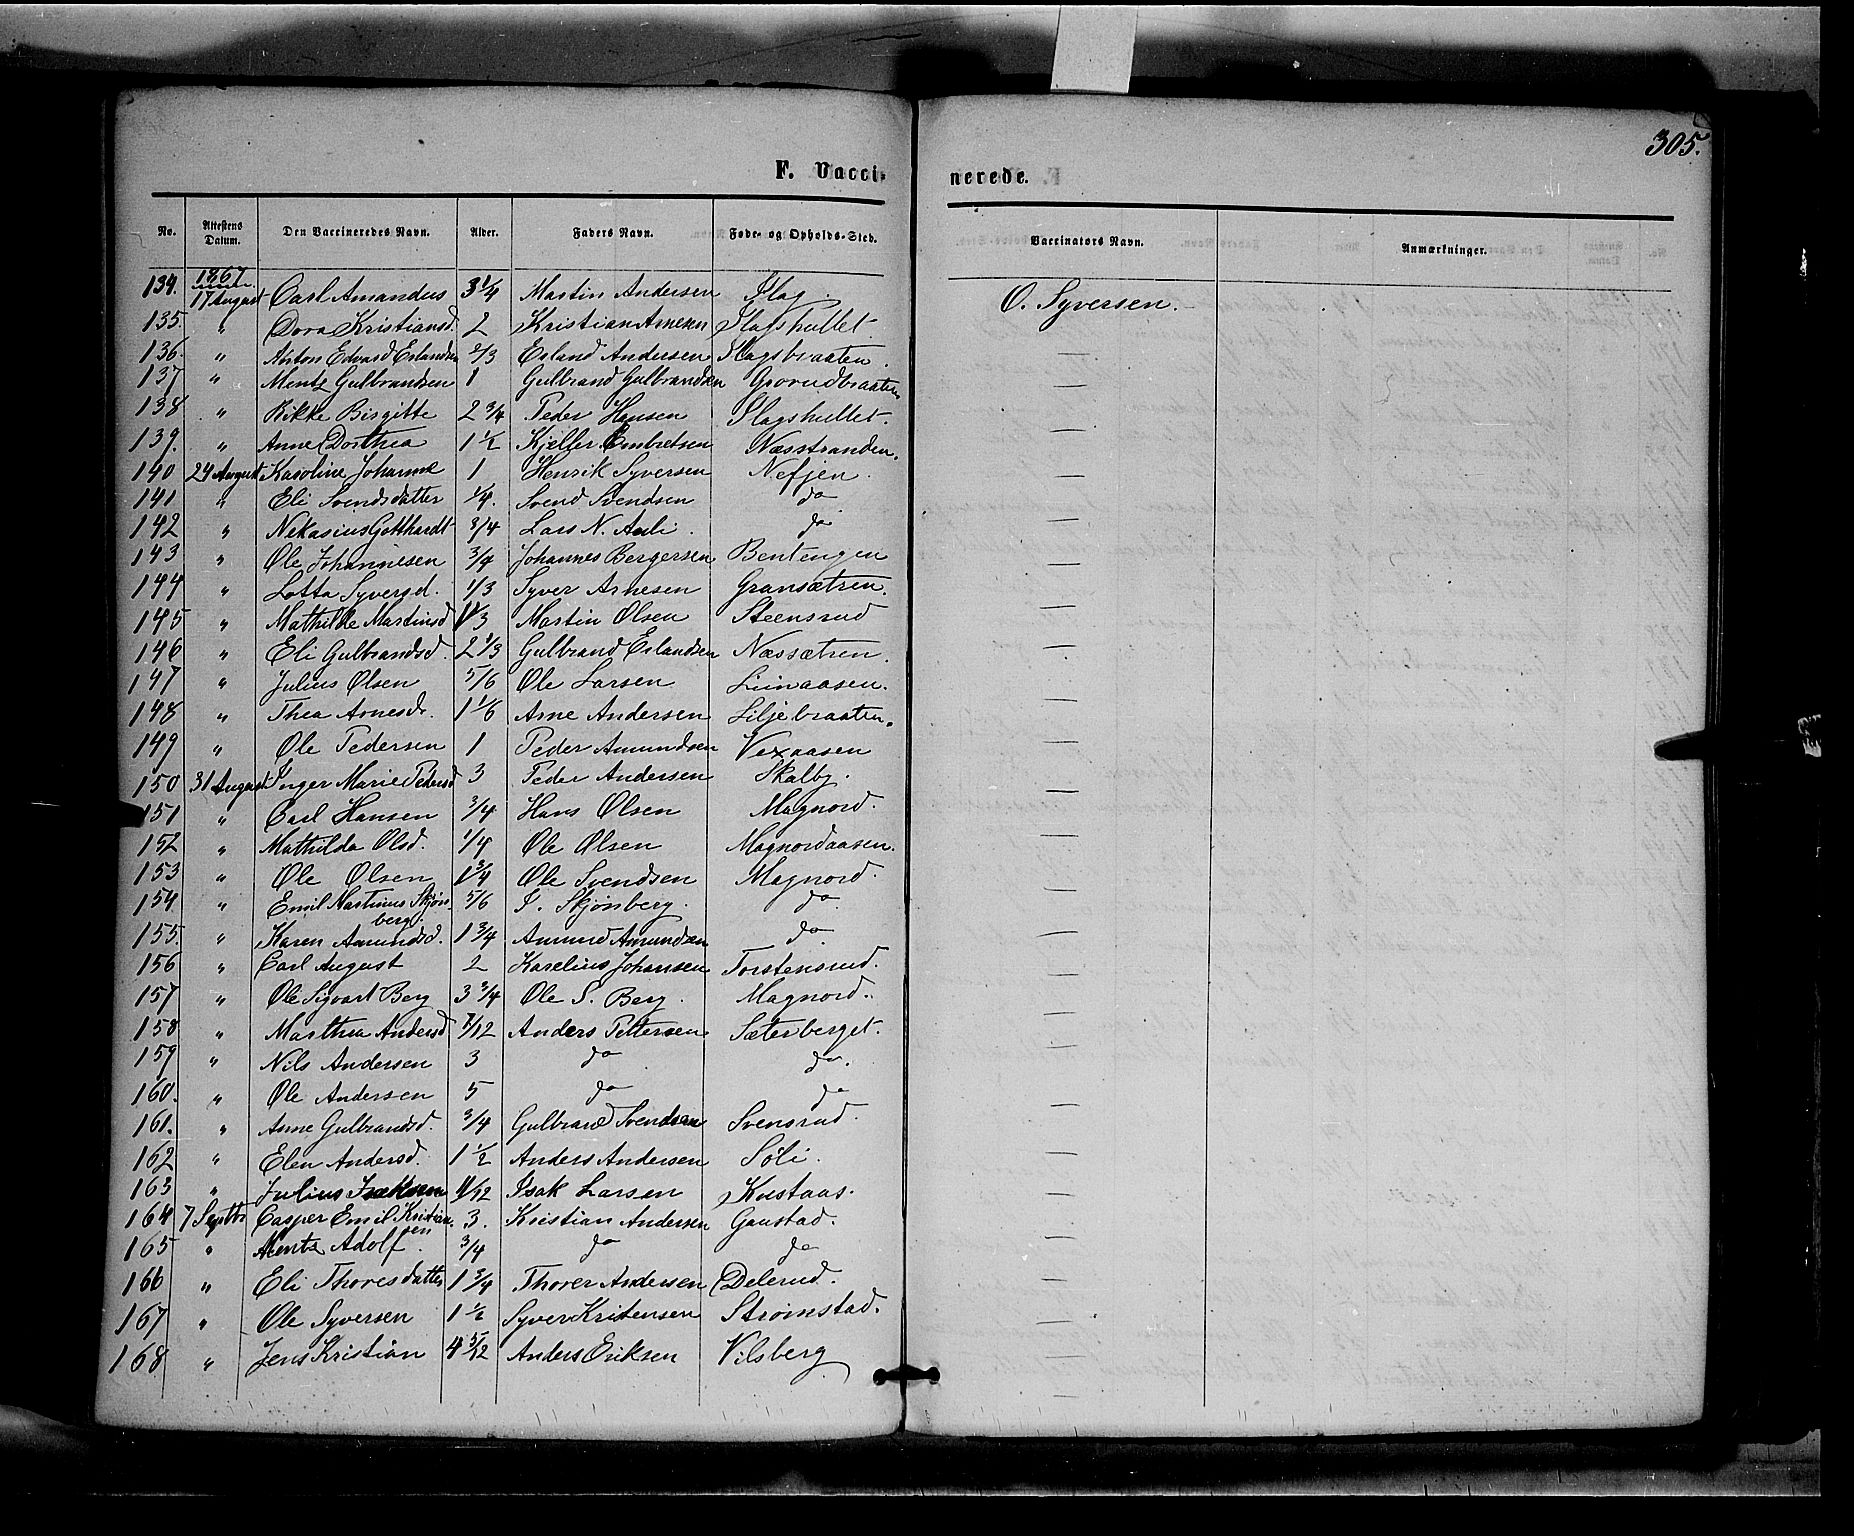 305.
F. Vacci-
nerede.
No. Attestens Datum. Den Vaccineredes Navn. Alder. Faders Navn. Føde- og Opholds-Sted. Vaccinators Navn. Anmærkninger.
134. 1867 17 August Carl Amandus 3 1/4 Martin Andersen Slag. O. Syversen.
135. " Dora Kristiansd. 2 Kristian Arnesen Slagshullet —
136. " Anton Edvard Erlandsen 2/3 Erland Andersen Slagsbraaten. —
137 " Mentz Gulbrandsen 1 Gulbrand Gulbrandsen Gorudbraaten —
138 " Rikke Birgitte 2 3/4 Peder Hansen Slagshullet. —
139. " Anne Dorthea 1 1/2 Kjeller Embretsen Næsstranden. —
140 24 August Karoline Johanne 1 Henrik Syversen Nefjen. —
141 " Eli Svendsdatter 1/4. Svend Svendsen do —
142 " Nekasius Gotthardt 3/4 Lars N. Auli. do —
143 " Ole Johannesen 3/4 Johannes Bergersen Bentengen —
144 " Lotta Syversd. 1/3 Syver Arnesen Gransætren. —
145 " Mathilde Martinsd 1 1/3 Martin Olsen Steensrud —
146 " Eli Gulbrandsd. 2 1/3 Gulbrand Erlandsen Næssætren. —
147 " Julius Olsen 5/6 Ole Larsen Liinaasen. —
148 " Thea Arnesdr. 1 1/6 Arne Andersen Liljebraaten. —
149 " Ole Pedersen 1 Peder Amundsen Vexaasen —
150 31 August Inger Marie Pedersd 3 Peder Andersen Skalby. —
151 " Carl Hansen 3/4 Hans Olsen Magnord. —
152 " Mathilda Olsd. 1/4 Ole Olsen Magnordaasen. —
153 " Ole Olsen 1 3/4 Ole Svendsen Magnord. —
154 " Emil Martinius Skjøns- 5/6 S. Skjønberg. do. —
berg.
155. " Karen Amundsd. 1 3/4 Amund Amundsen do. —
156 " Carl August 2 Karelius Johansen Torstensrud. —
157 " Ole Sigvart Berg 3 3/4 Ole S. Berg. Magnord. —
158 " Marthea Andersd 7/12 Anders Pettersen Sæterberget. —
159 " Nils Andersen 3 do do. —
160. " Ole Andersen 5 do do —
161. " Anne Gulbrandsd. 3/4 Gulbrand Svendsen Svensrud. —
162 " Elen Andersd. 1 1/2 Anders Andersen Søli. —
163 " Julius Isaksen 11/12 Isak Larsen Knstaas. —
164 7 Septbr Casper Emil Kristian- 3. Kristian Andersen Gaustad. —
sen
165 " Mentz Adolf. 3/4 do do —
166 " Eli Thoresdatter 1 3/4 Thorer Andersen Delerud. —
167 " Ole Syversen 1 1/2 Syver Kristensen Strømstad. —
168 " Jens Kristian 4 5/12 Anders Eriksen Vilsberg —